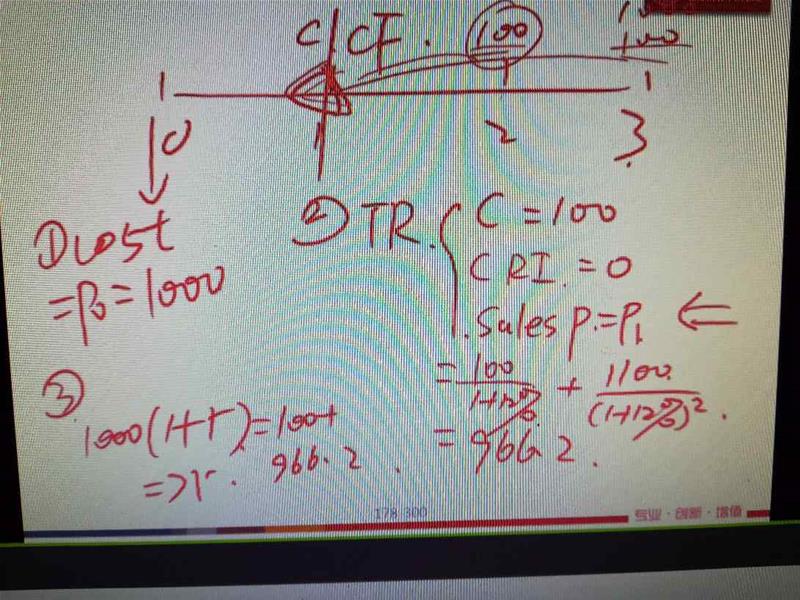 C/CF. 100
100
0 1 2 3
① cost
= P₀ = 1000
② TR. { C = 100
CRI. = 0
Sales p. = P₁ ⇐
= 100/(1+12%) + 1100/(1+12%)².
= 966.2.
③
1000(1+r) = 100+
966.2.
=> r.
178 300
专业·创新·增值